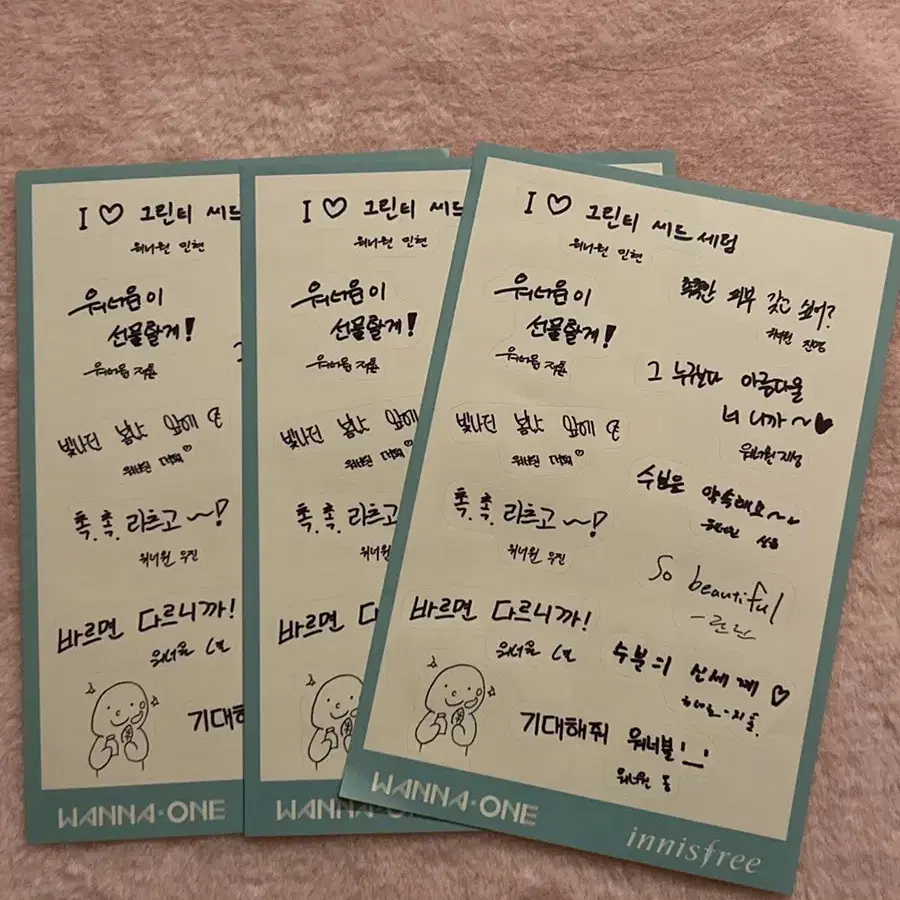 I ♡ 그린티 씨드
워너원 민현
워너원이
선물할게!
워너원 지훈
빛나던 봄날 앞에
워너원 대휘♡
촉.촉. 리츠고~!
워너원 우진
바르면 다르니까!
워너원
기대해줘
WANNA·ONE
I ♡ 그린티 씨드
워너원 민현
워너원이
선물할게!
워너원 지훈
빛나던 봄날 앞에
워너원 대휘♡
촉.촉. 리츠고
워너원
바르면 다르니까!
WANNA·ONE
I ♡ 그린티 씨드 세럼
워너원 민현
촉촉한 피부 갖고 싶어?
워너원 진영
워너원이
선물할게!
워너원 지훈
그 누구보다 아름다울
너 니까~♥
워너원 지성
빛나던 봄날 앞에
워너원 대휘♡
수분은 약속해요~
워너원 성우
촉.촉. 리츠고~!
워너원 우진
So beautiful
바르면 다르니까!
워너원
수분의 신세계♡
기대해줘 워너블
워너원
WANNA·ONE
innisfree